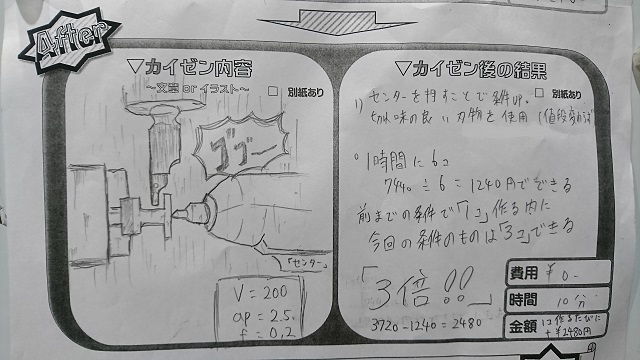 After
▽カイゼン内容
～文章 or イラスト～
□ 別紙あり
ゴゴー
「センター」
V=200
ap=2.5
f=0.2
▽カイゼン後の結果
□ 別紙あり
1) センターを押すことで条件UP.
切れ味の良い刃物を使用
○1時間に6コ
7440÷6=1240円でできる
前までの条件で「1コ」作る内に
今回の条件のものは「3コ」できる
「3倍!!」
3720-1240=2480
費用 ¥0-
時間 10分
金額 1コ作るたびに
+¥2480円